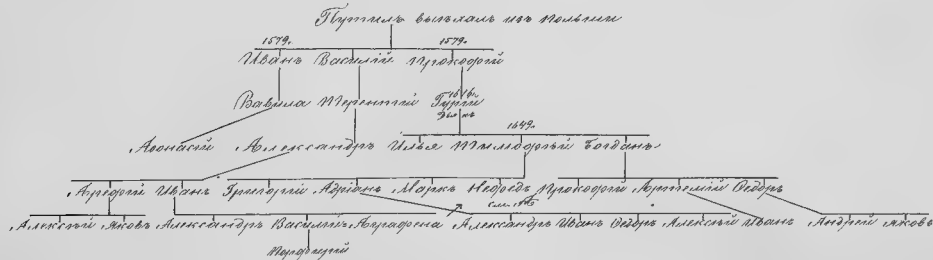 Путилъ выѣхалъ изъ Польши
1579. 1579.
Иванъ Василій Прокофій
1616.
Вавила Терентій Гурій
1649.
Афонасій Александръ Илья Тимофѣй Богданъ
Арефій Иванъ Григорій Адріанъ Маркъ Нефедъ Прокофій Артемій Ѳедоръ
Алексѣй Яковъ Александръ Василій Аграфена Александръ Иванъ Ѳедоръ Алексѣй Иванъ Андрей Яковъ
Порфирій